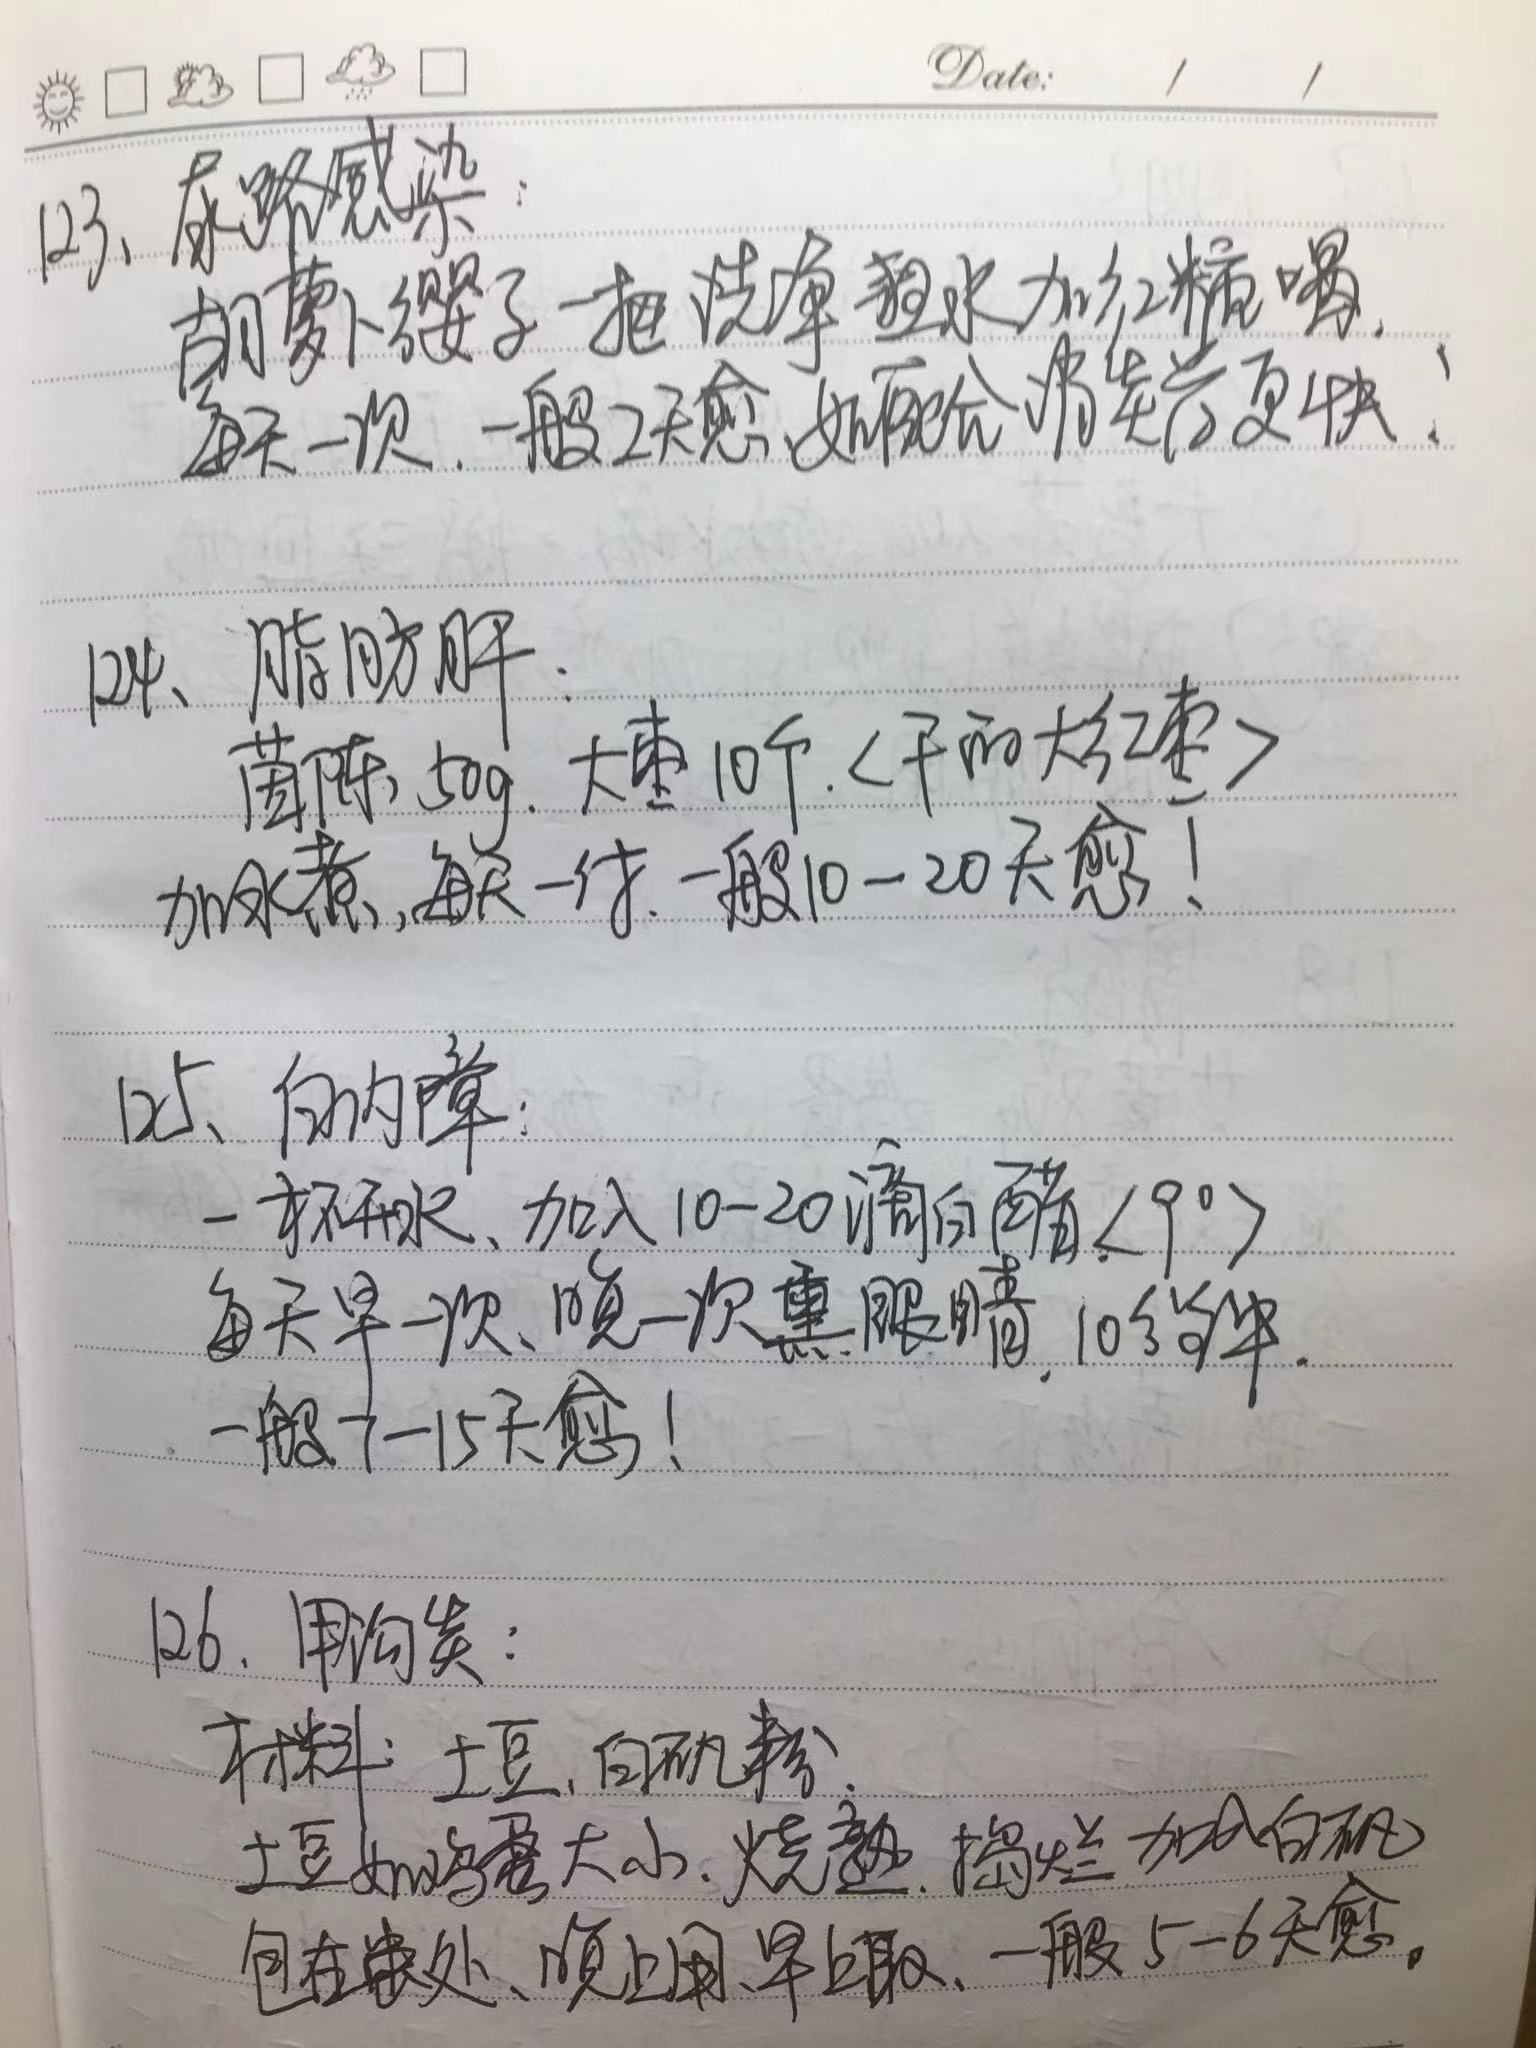 Date: / /
123、尿路感染:
胡萝卜缨子一把洗净 煮水加红糖喝.
每天一次.一般2天愈、如配合消炎药更快!
124、脂肪肝:
茵陈50g.大枣10个.<干的大红枣>
加水煮,每天一付.一般10-20天愈!
125、白内障:
一杯开水、加入10-20滴白醋.<9°>
每天早一次、晚一次熏眼睛.10分钟.
一般7-15天愈!
126.甲沟炎:
材料:土豆、白矾粉.
土豆如鸡蛋大小.烧熟.捣烂加入白矾
包在患处、晚上用、早上取、一般5-6天愈。